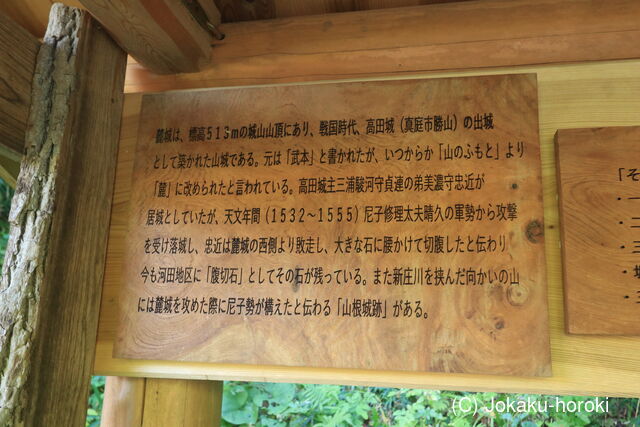 麓城は、標高513mの城山山頂にあり、戦国時代、高田城（真庭市勝山）の出城
として築かれた山城である。元は「武本」と書かれたが、いつからか「山のふもと」より
「麓」に改められたと言われている。高田城主三浦駿河守貞連の弟美濃守忠近が
居城としていたが、天文年間（1532～1555）尼子修理太夫晴久の軍勢から攻撃
を受け落城し、忠近は麓城の西側より敗走し、大きな石に腰かけて切腹したと伝わり
今も河田地区に「腹切石」としてその石が残っている。また新庄川を挟んだ向かいの山
には麓城を攻めた際に尼子勢が構えたと伝わる「山根城跡」がある。
「そ
(C) Jokaku-horoki